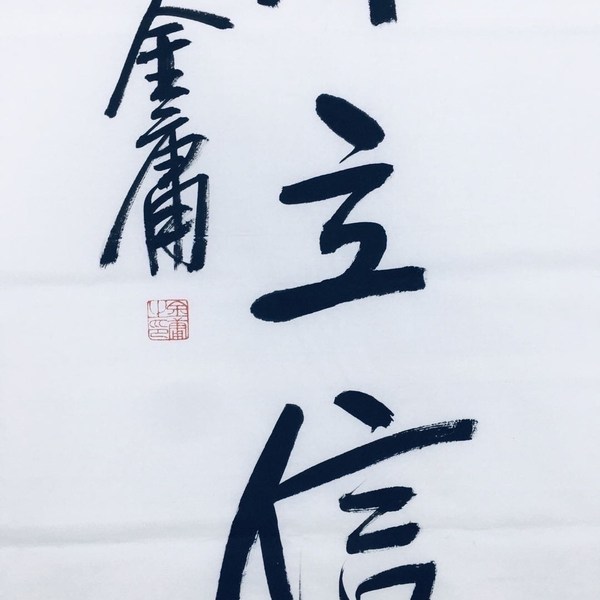 立信
金庸
金庸之印